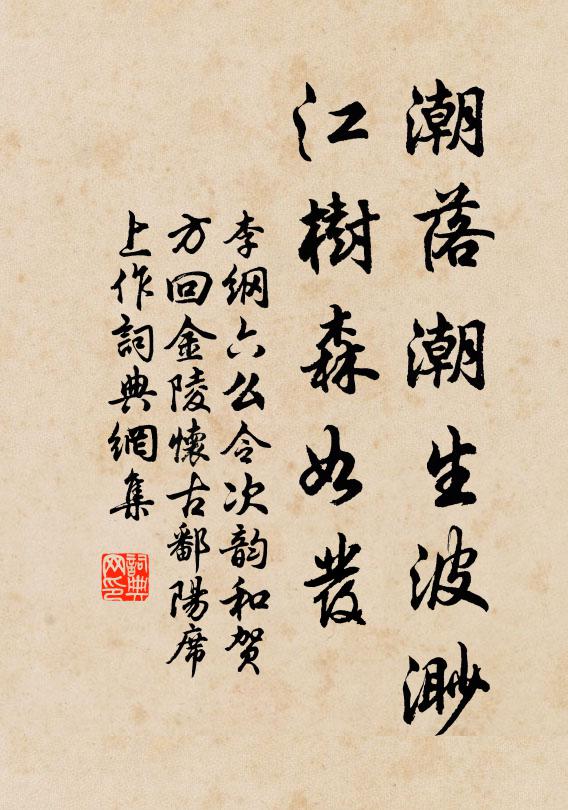 潮落潮生波渺
江樹森如發
李綱六么令次韵和贺
方回金陵懷古鄱陽席
上作詞典網集
詞典
网印